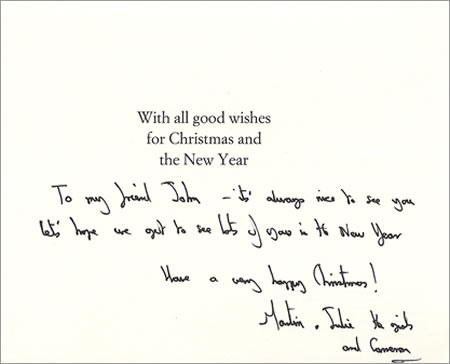 With all good wishes
for Christmas and
the New Year
To my friend John - its' always nice to see you
lets' hope we get to see lots of you in the New Year
Have a very happy Christmas!
Martin, Julie the girls
and Cameron